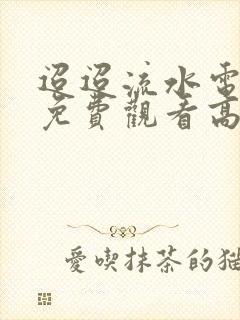 迢迢流水電
免費觀看高
愛喫抹茶的貓